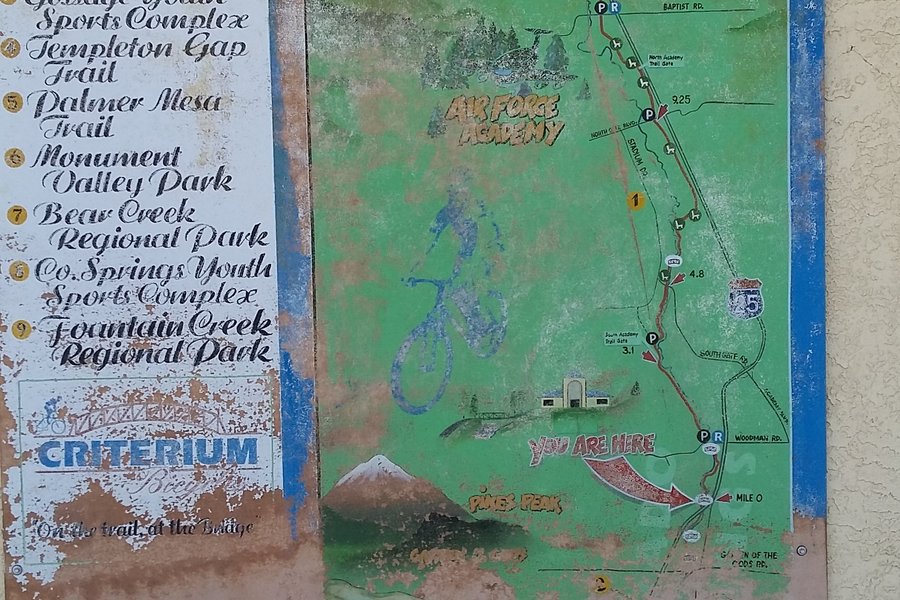 Sports Complex
4 Templeton Gap
Trail
5 Palmer Mesa
Trail
6 Monument
Valley Park
7 Bear Creek
Regional Park
8 Co. Springs Youth
Sports Complex
9 Fountain Creek
Regional Park
CRITERIUM
"On the trail, at the Bridge"
P R
BAPTIST RD.
North Academy
Trail Gate
AIR FORCE
ACADEMY
P
9.25
NORTH GATE BLVD.
STADIUM RD.
1
4.8
25
South Academy
Trail Gate
P
3.1
SOUTH GATE RD.
P R
WOODMAN RD.
YOU ARE HERE
MILE 0
PIKES PEAK
GARDEN OF THE
GODS RD.